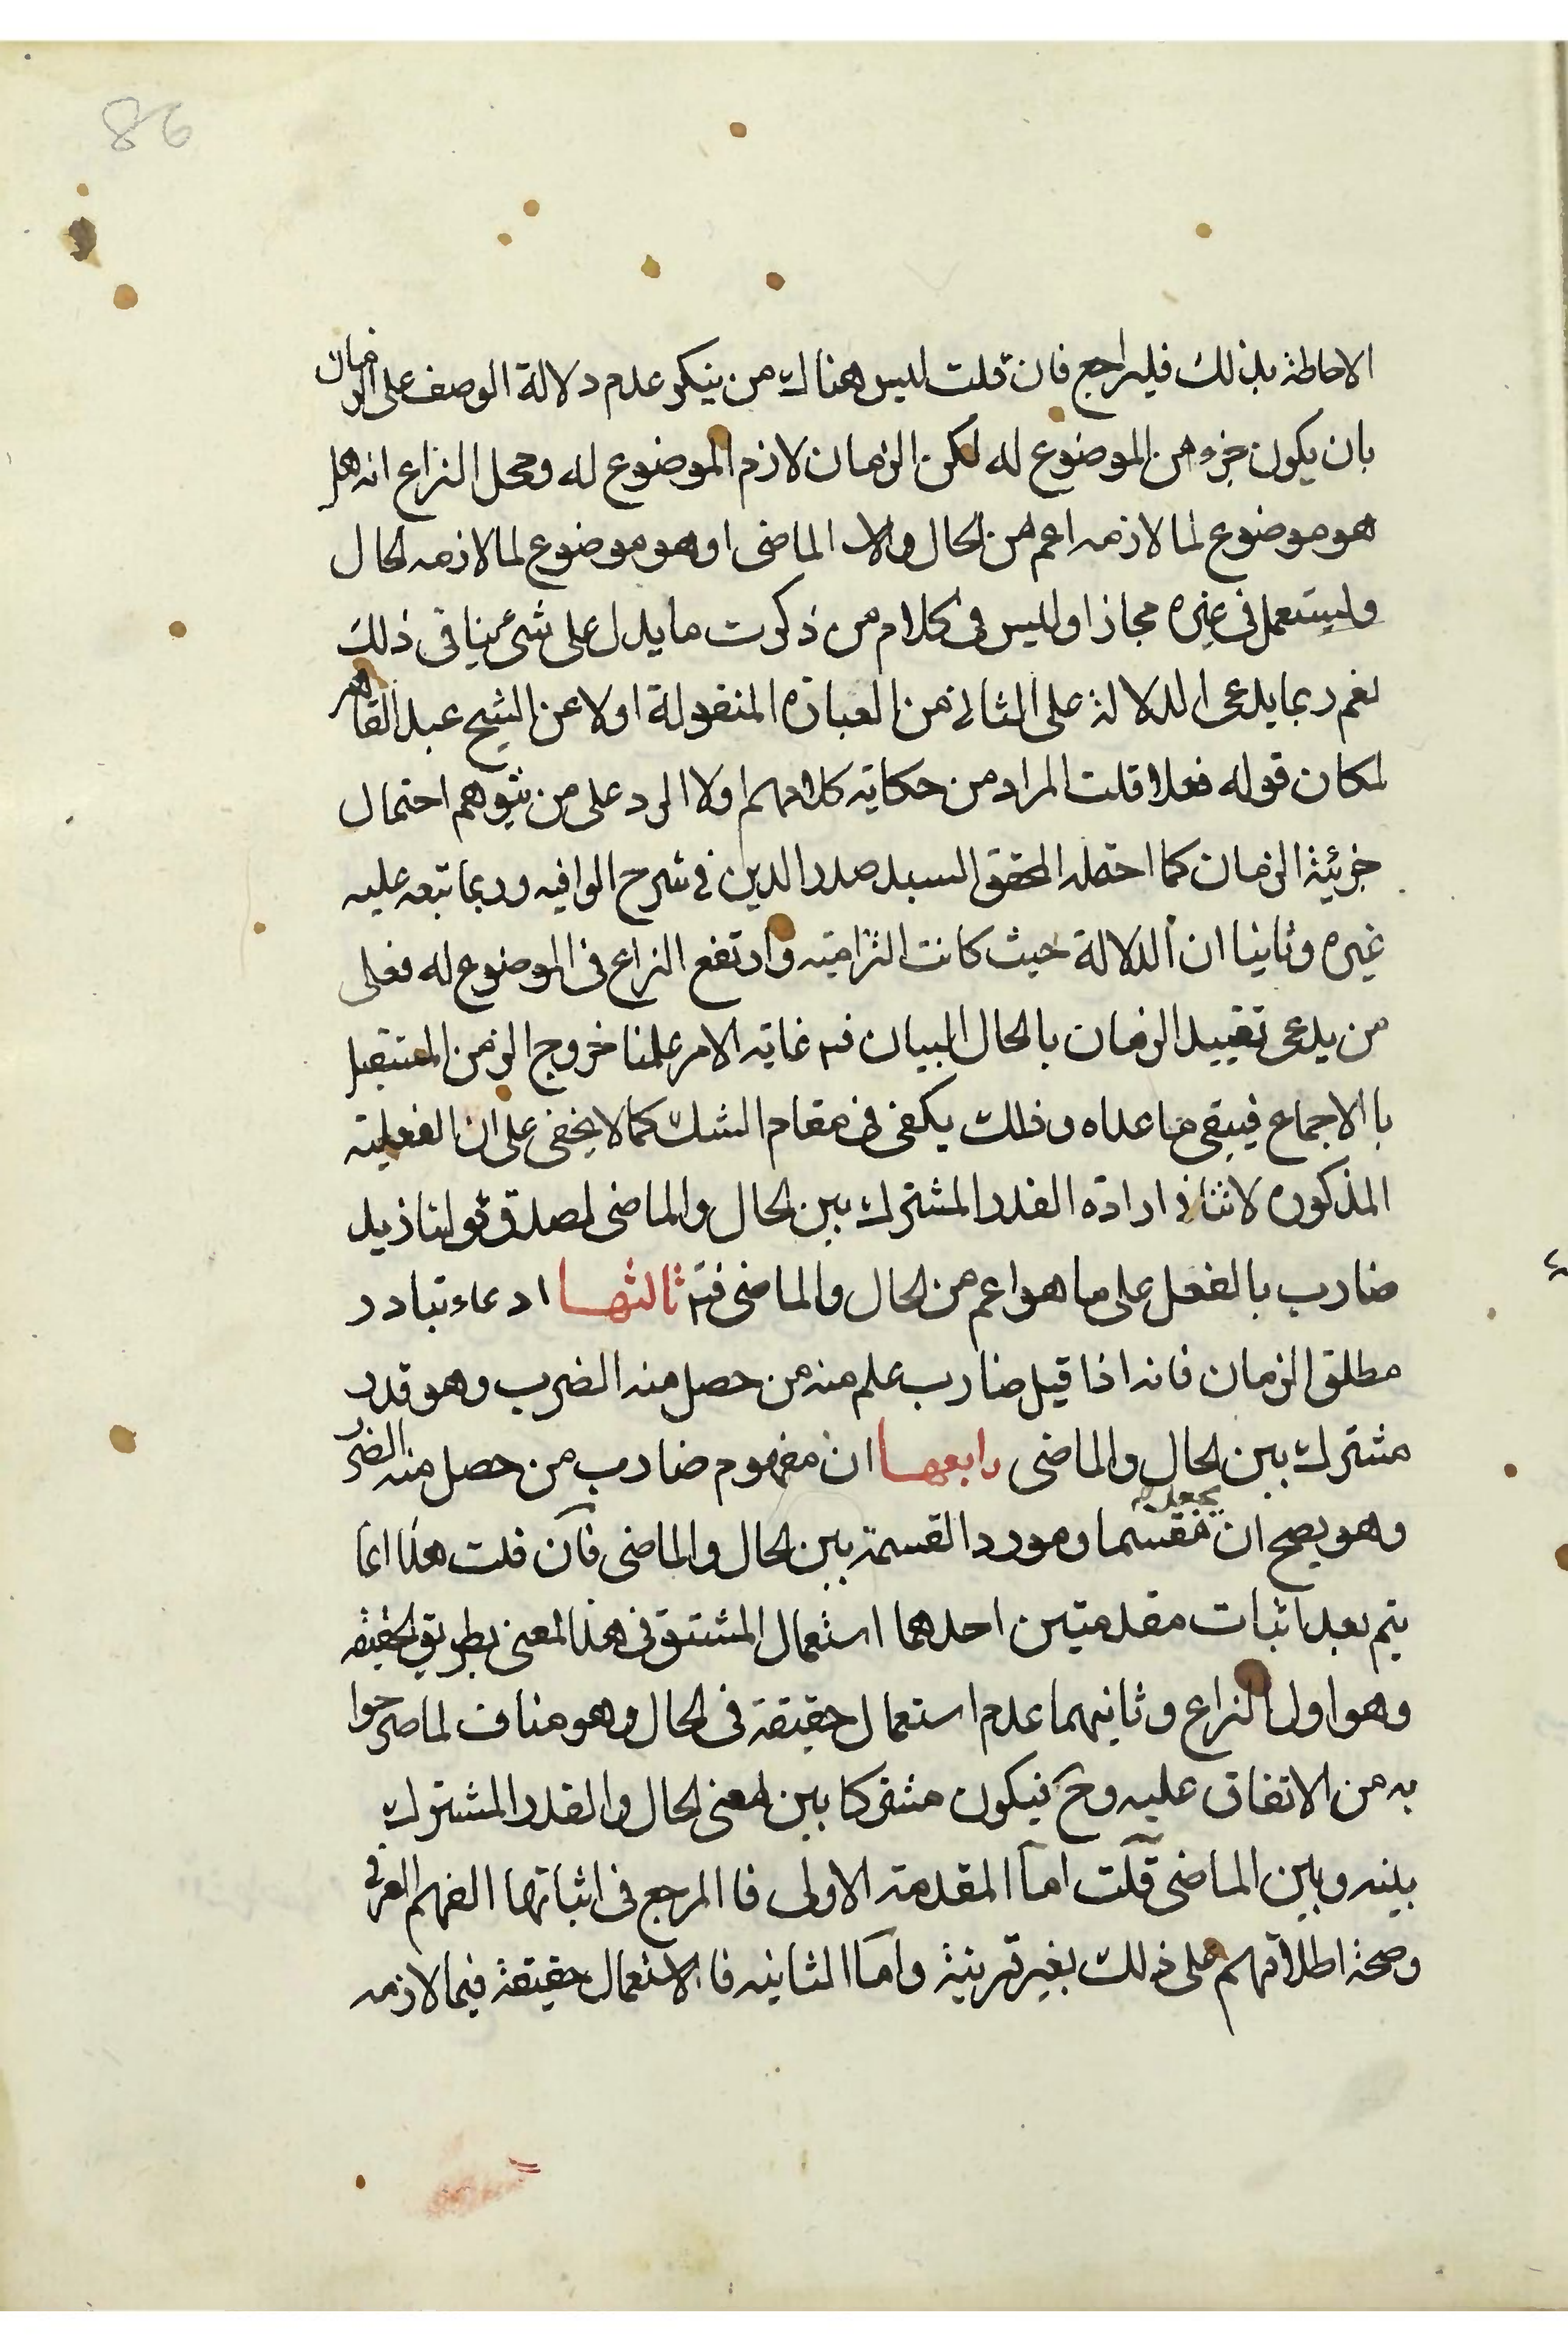 86
الاحاطة بذلك فليراجع فان قلت ليس هناك من ينكر عدم دلالة الوصف على الزمان
بان يكون جزء من الموضوع له لكن الزمان لازم الموضوع له ومحل النزاع انه هل
هو موضوع لما لازمه اعم من الحال والا الماضى او هو موضوع لما لازمه الحال
وليستعمل فى غيره مجازا وليس فى كلام من ذكرت ما يدل على شئ ينافى ذلك
نعم ربما يدعى الدلالة على الثانى من العبارة المنقولة اولا عن الشيخ عبد القاهر
لمكان قوله فعلا قلت المراد من حكاية كلامهم اولا الرد على من يتوهم احتمال
جزئية الزمان كما احتمله المحقق السيد صدر الدين فى شرح الوافيه وربما تبعه عليه
غيره وثانيا ان الدلالة حيث كانت التزاميته وارتفع النزاع فى الموضوع له فعلى
من يدعى تقييد الزمان بالحال البيان فم غاية الامر علمنا خروج الزمن المستقبل
با الاجماع فيبقى ما عداه وذلك يكفى فى مقام الشك كما لا يخفى على ان الفعلية
المذكوره لا تنافى ارادة القدر المشترك بين الحال والماضى لصدق قولنا زيد
ضارب بالفعل على ما هو اعم من الحال والماضى فتم ثالثها ادعاء تبادر
مطلق الزمان فانه اذا قيل ضارب علم منه من حصل منه الضرب وهو قدر
مشترك بين الحال والماضى رابعها ان مفهوم ضارب من حصل منه الضرب
وهو يصح ان يجعل مقسما ومورد القسمة بين الحال والماضى فان قلت هذا انما
يتم بعد اثبات مقدمتين احدهما استعمال المشتق فى هذا المعنى بطريق الحقيقه
وهو اول النزاع وثانيهما عدم استعمال حقيقة فى الحال وهو مناف لما صرحوا
به من الاتفاق عليه وح فيكون مشتركا بين المعنى الحال والقدر المشترك
بينه وبين الماضى قلت اما المقدمة الاولى فا المرجع فى اثباتها الفهم العرفى
وصحة اطلاقهم على ذلك بغير قرينة واما الثانيه فا الاستعمال حقيقة فيما لازمه